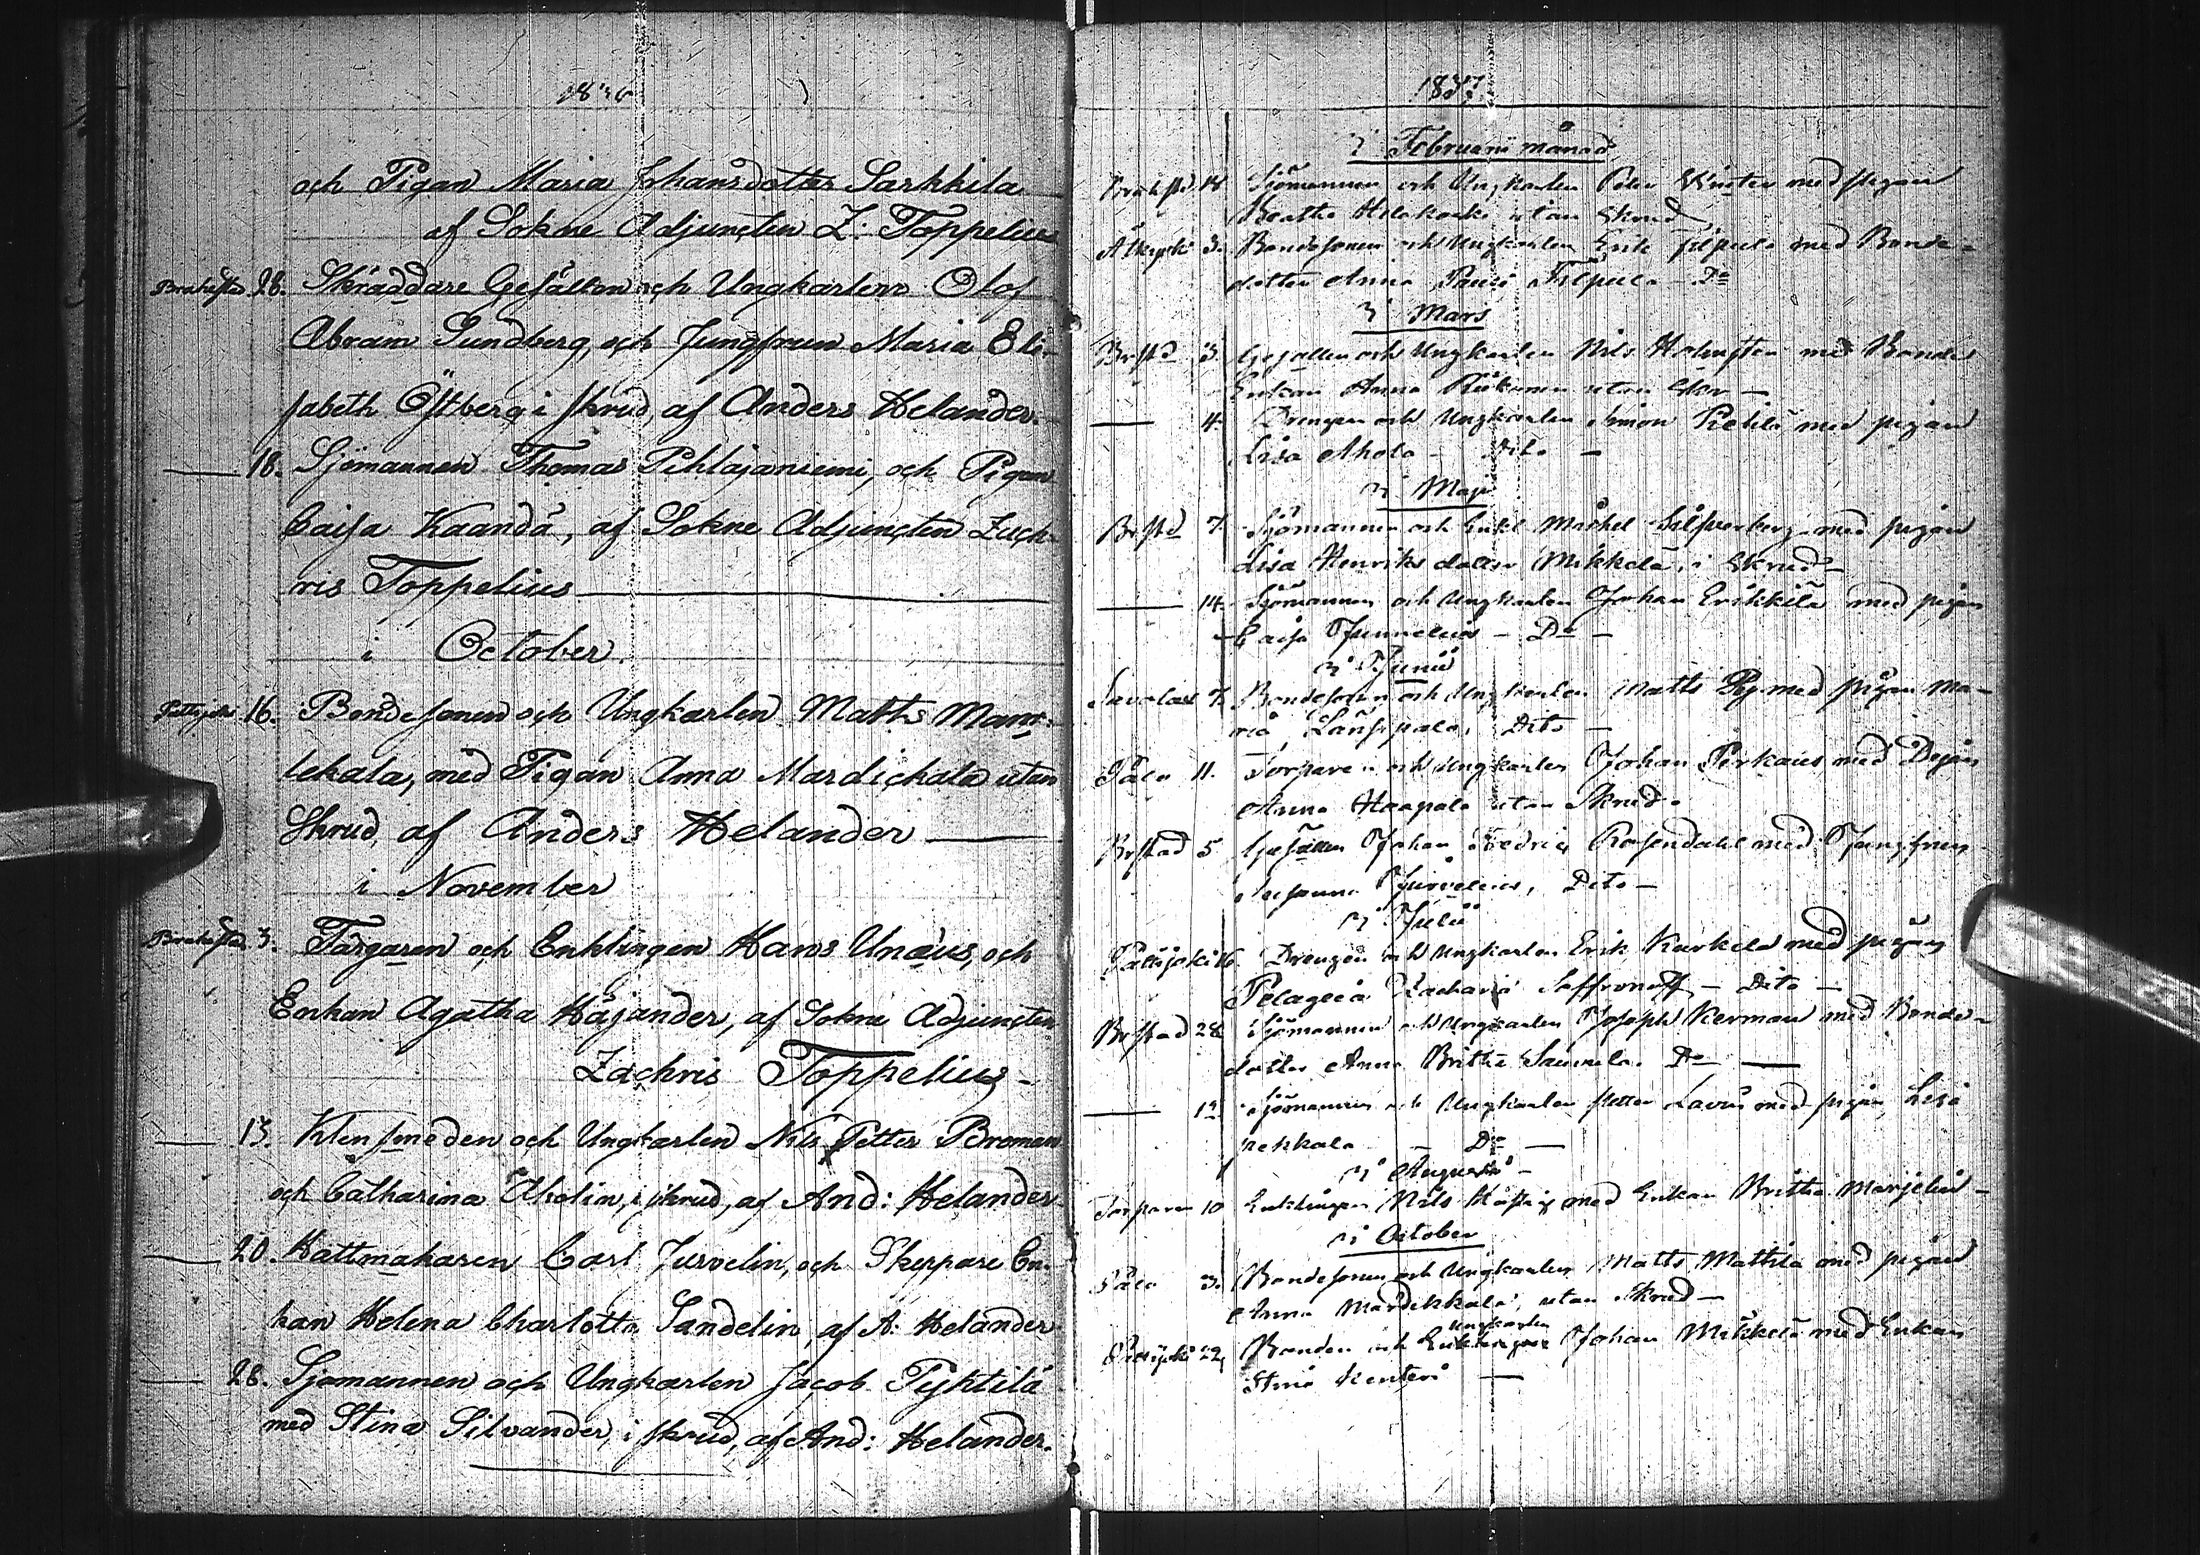 1836
och Pigan Maria Johansdotter Sarkkila
af Sokne Adjuncten Z: Toppelius
Brahesta 28. Skräddare Gesällen och Ungkarlen Olof
Abram Sundberg, och Jungfrun Maria Eli-
sabeth Östberg i skrud, af Anders Helander.
18. Sjömannen Thomas Pihlajaniemi, och Pigan
Caisa Kaandä, af Sokne Adjuncten Zach-
ris Toppelius
i October
Pattijoki 16. Bondesonen och Ungkarlen Matts Marr-
lekala, med Pigan Anna Mardickala utan
Skrud, af Anders Helander
i November
Brahesta 3. Färgaren och Enklingen Hans Unæus, och
Enkan Agatha Häjander, af Sokne Adjuncten
Zachris Toppelius
13. Klensmeden och Ungkarlen Nils Petter Broman
och Catharina Åholin, i skrud, af And: Helander
20. Hattmakaren Carl Jurvelin, och Skeppare En-
kan Helena Charlotta Sandelin, af A: Helander
28. Sjömannen och Ungkarlen Jacob Pyktilä
med Stina Silvander, i skrud, af And: Helander.
1837
i Februarii månad
Brahestd 18 Sjömannen och Ungkarlen Petter med pigan
Beatha utan Skrud
3. Bondesonen och Ungkarlen Erik Filpula med Bonde-
dotter Anna Filpula Do
i Mars
Brstd 3. Gesällen och Ungkarlen Nils Holmsten med Bonde
Enkan Anna utan Skr
4. Drengen och Ungkarlen Simon med pigan
Lisa Ahola Dito
i Maji
Brstd 7. Sjömannen och Enkl Michel Silfverberg med pigan
Lisa Henriks dotter Mikkela, i Skrud
14. Sjömannen och Ungkarlen Johan Erikkilä med pigan
Caisa Do
i Junii
Savolax 7. Bondesonen och Ungkarlen Matts med pigan Ma-
ria Länsipala, Dito
Salo 11. Torparen och Ungkarlen Johan Pirkains med Pigan
Anna Haapala utan Skrud.
Brstad 5 Gesällen Johan Fredric Rosendahl med Jungfrun
Susanna Jurvelius, Dito
i Julii
Pattijoki 16. Drengen och Ungkarlen Erik Kurkela med pigan
Pelageia Zacharia Saffronoff Dito
Brstad 28 Sjömannen och Ungkarlen Joseph Kerman med Bonde-
dotter Anna Britha Saunela. Do
12 Sjömannen och Ungkarlen Petter Lavus med pigan Lisa
pekkala Do
i Augusti
Torparen 10 Enklingen Nils med Enkan Britha Marjelin
i October
Salo 3. Bondesonen och Ungkarlen Matts Mattila med pigan
Anna Mardikkala, utan Skrud
Ungkarlen
Pattijoki 22, Bonden och Enklingen Johan Mikkelä med Enkan
Stina Kenteri